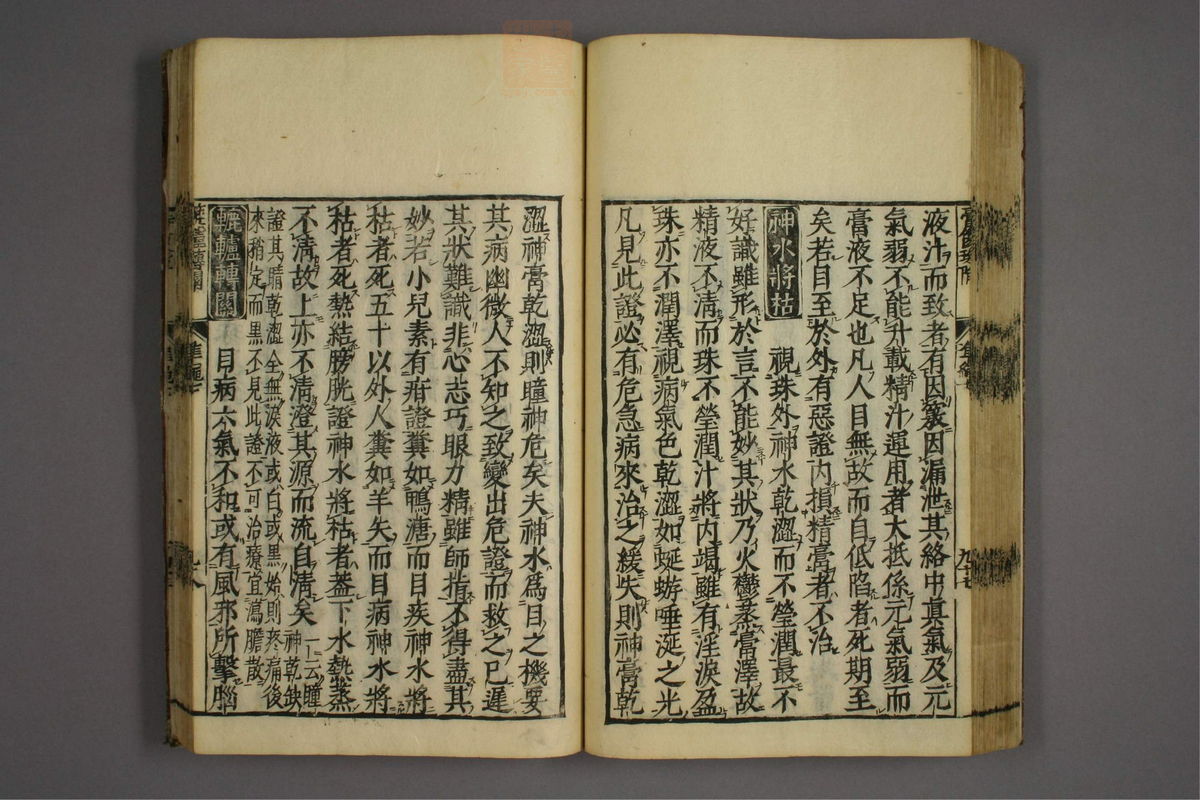 液汁而致者有因羕因漏泄其絡中真氣及元
氣弱不能升載精汁運用者大抵係元氣弱而
膏液不足也凡人目無故而自低陷者死期至
矣若目至於外有惡證内損精膏者不治
神水將枯 視珠外神水乾澀而不瑩潤最不
好識雖形於言不能妙其狀乃火鬱蒸膏澤故
精液不清而珠不瑩潤汁將内竭雖有淫淚盈
珠亦不潤澤視病氣色乾澀如蜒蝣唾涎之光
凡見此證必有危急病來治之緩失則神膏乾
澀神膏乾澀則瞳神危矣夫神水爲目之機要
其病幽微人不知之致變出危證而救之已遲
其狀難識非心志巧眼力精雖師指不得盡其
妙若小兒素有疳證糞如鴨溏而目疾神水將
枯者死五十以外人糞如羊矢而目病神水將
枯者死熱結膀胱證神水將枯者葢下水熱蒸
不清故上亦不清澄其源而流自清矣 一云瞳
神乾缺
證其睛乾澀全無淚液或白或黑始則疼痛後
來稍定而黑不見此證不可治療宜瀉膽散
轆轤轉關 目病六氣不和或有風邪所擊腦